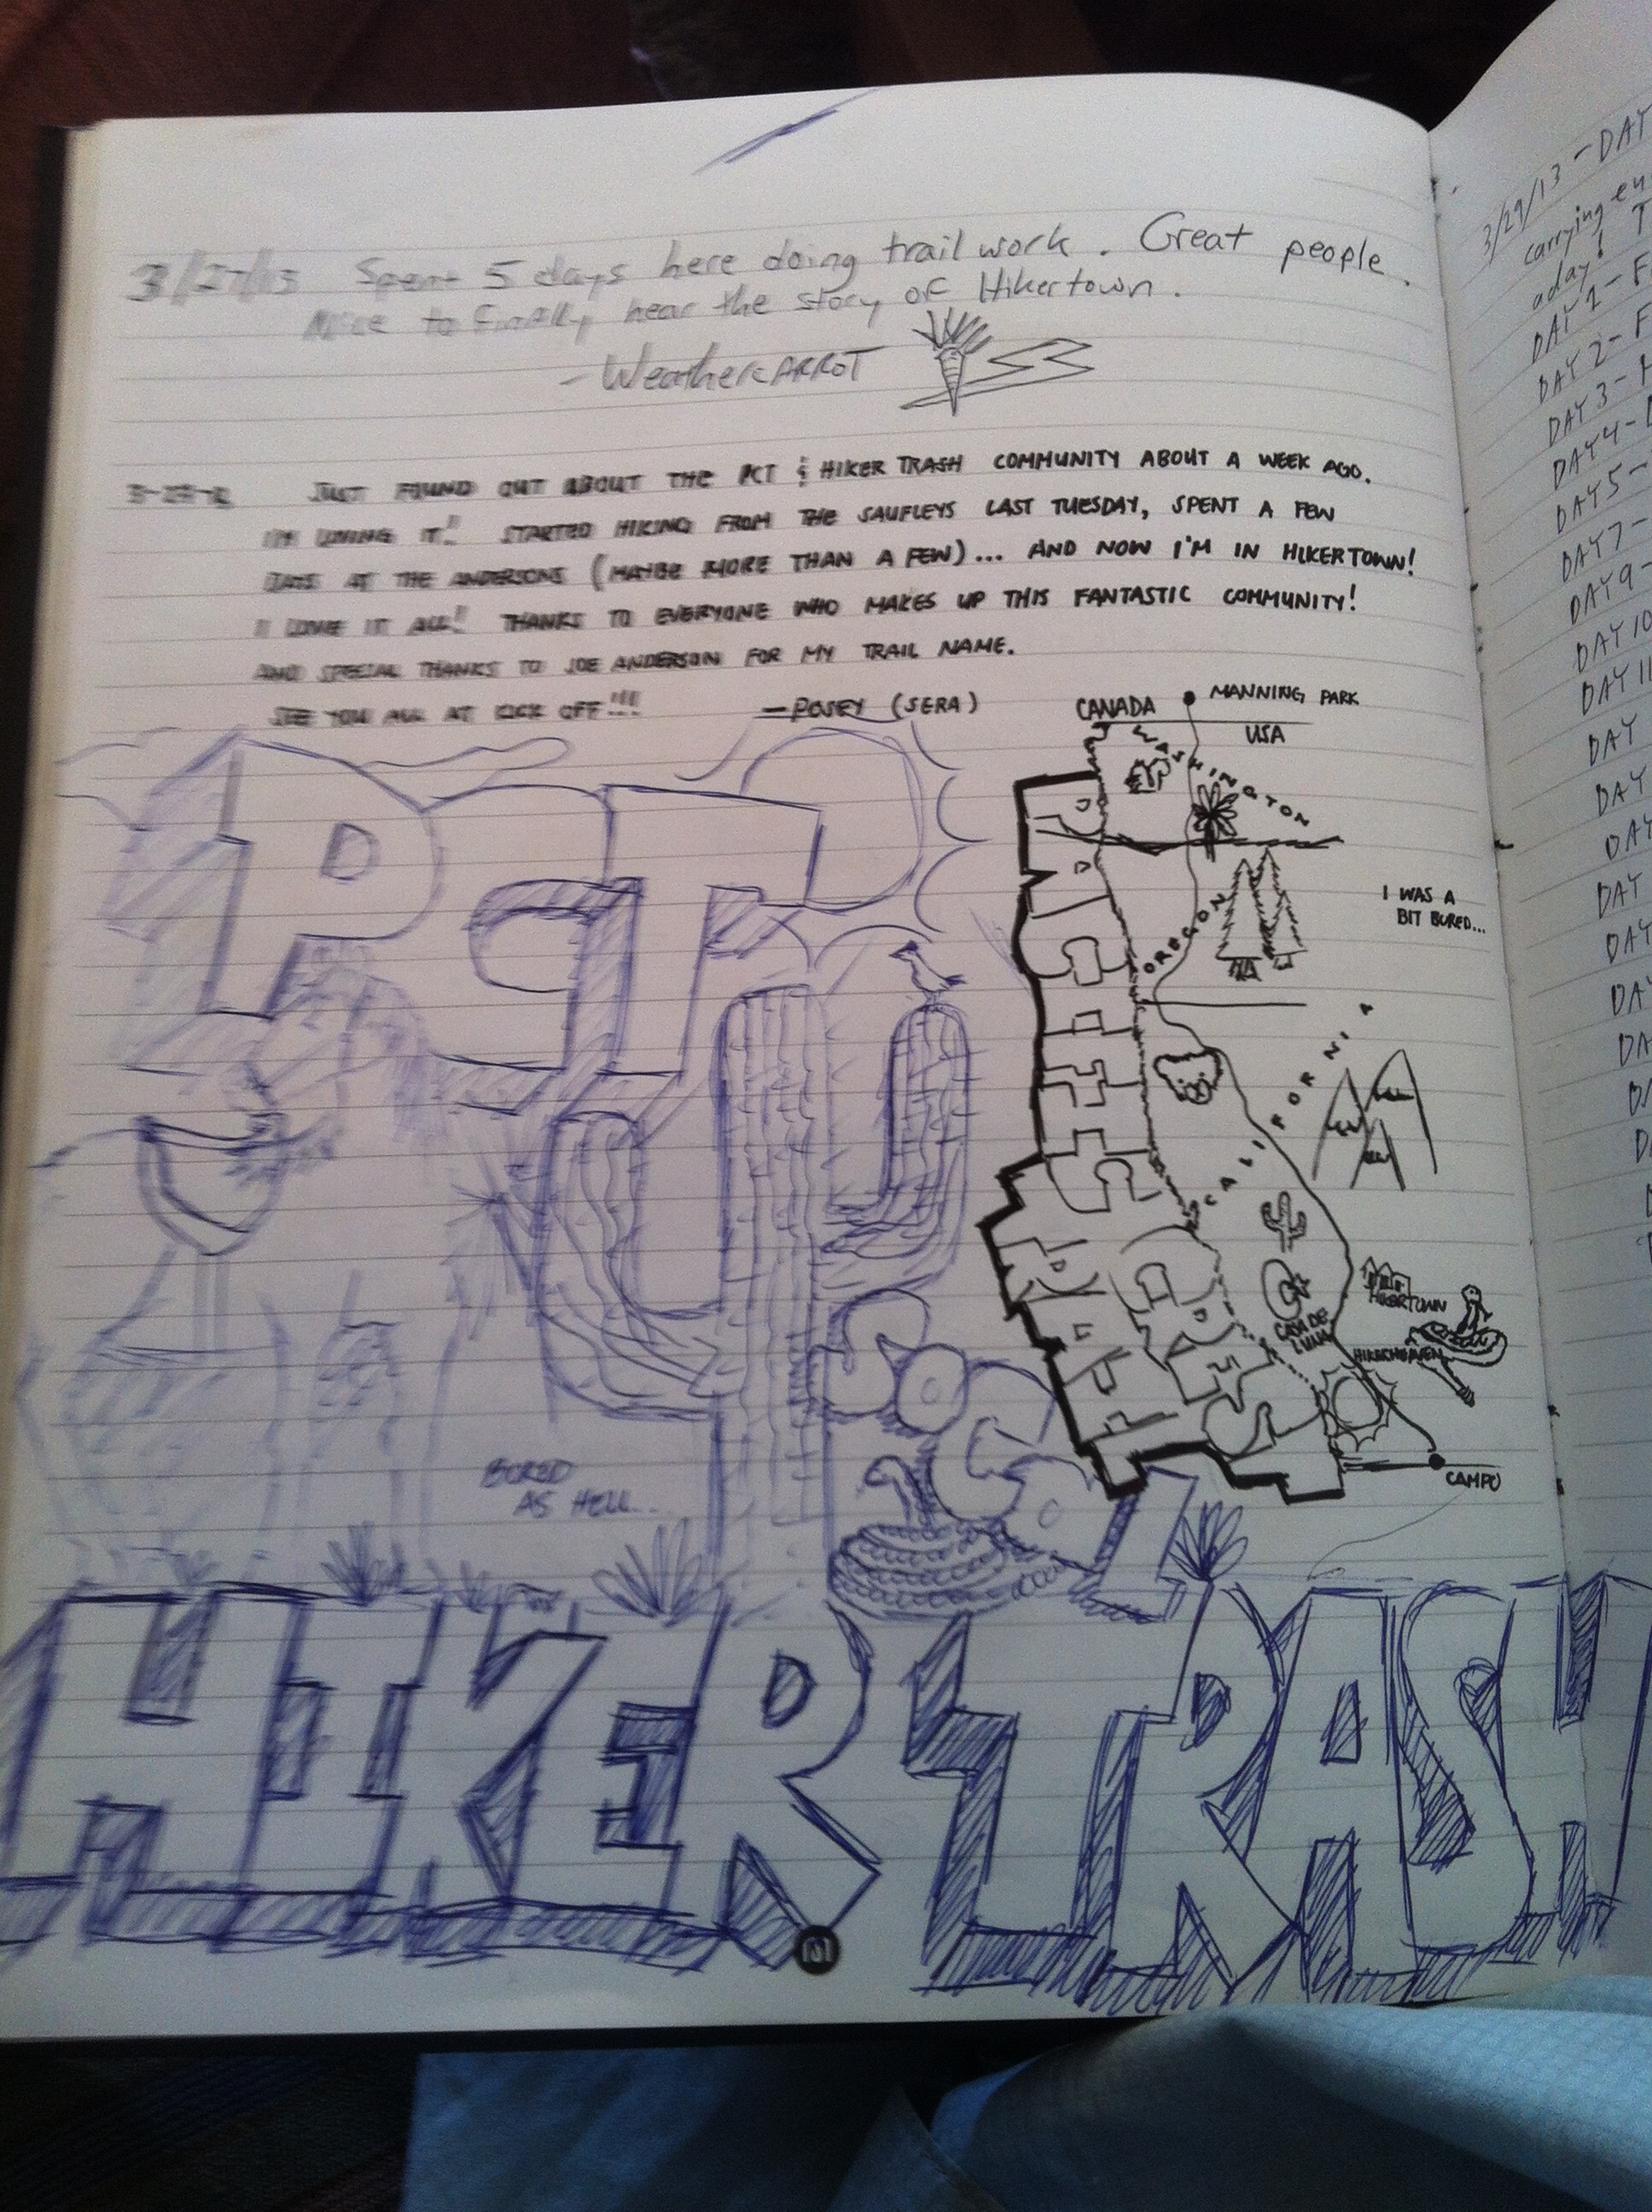 3/27/13 Spent 5 days here doing trail work. Great people.
Nice to finally hear the story of Hikertown.
- WeatherCARROT
JUST FOUND OUT ABOUT THE PCT & HIKER TRASH COMMUNITY ABOUT A WEEK AGO.
I'M LOVING IT!! STARTED HIKING FROM THE SAUFLEYS LAST TUESDAY, SPENT A FEW
DAYS AT THE ANDERSONS (MAYBE MORE THAN A FEW)... AND NOW I'M IN HIKERTOWN!
I LOVE IT ALL! THANKS TO EVERYONE WHO MAKES UP THIS FANTASTIC COMMUNITY!
AND SPECIAL THANKS TO JOE ANDERSON FOR MY TRAIL NAME.
SEE YOU ALL AT KICK OFF!!!
—POSEY (SERA)
CANADA
MANNING PARK
USA
WASHINGTON
I WAS A
BIT BORED...
OREGON
CALIFORNIA
HIKERTOWN
CASA DE
LUNA
HIKERHEAVEN
CAMPO
PACIFIC
OCEAN
PCT
SOCAL
BORED
AS HELL...
HIKER TRASH
3/29/13 - DAY
carrying
a day!
DAY 1 - F
DAY 2 - F
DAY 3 -
DAY 4 -
DAY 5 -
DAY 7 -
DAY 9 -
DAY 10
DAY 11
DAY
DAY
DAY
DAY
DAY